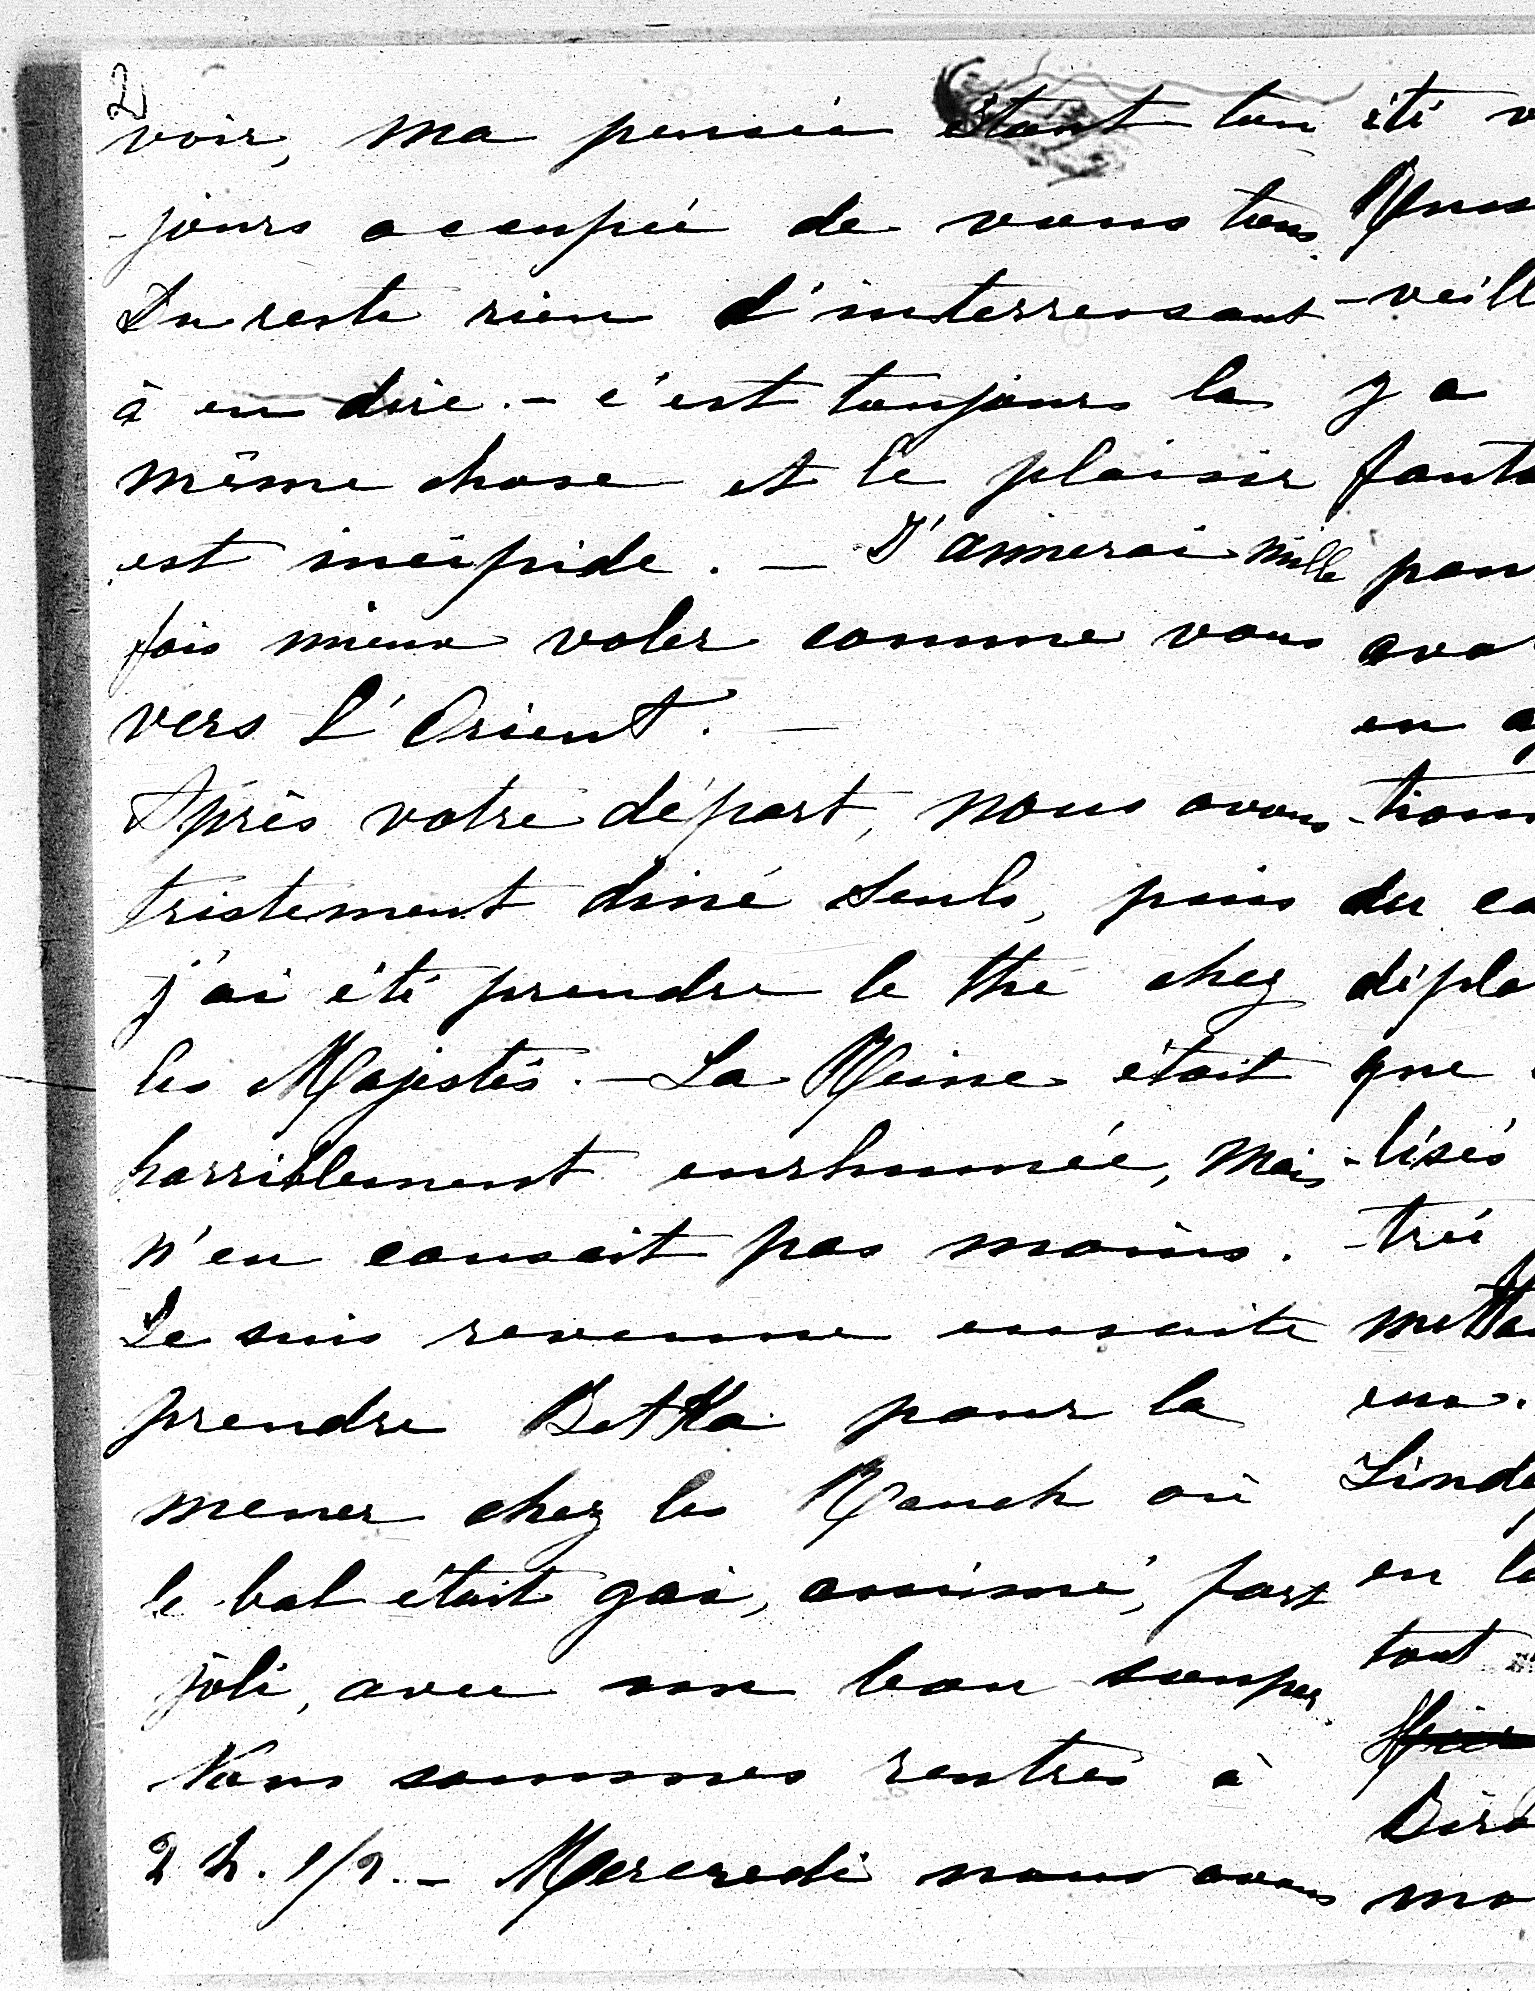 2
voir, ma pensée étant tou
-jours occupée de vous tous.
Du reste rien d'interressant
à en dire. - c'est toujours la
même chose et le plaisir
est insipide. — J'aimerai mille
fois mieux voler comme vous
vers l'Orient. —
Après votre départ, nous avons
tristement diné seuls, puis
j'ai été prendre le thé chez
les Majestés. - La Reine était
horriblement enrhumée, mais
n'en causait pas moins.
Je suis revenue ensuite
prendre Betka pour la
mener chez les Rauch où
le bal était gai, animé, fort
joli, avec un bon souper.
Nous sommes rentrés à
2 h. 1/2. - Mercredi nous avons
été
-veill
y a
en
-tion
du
que
-lisés
-tré
eux.
en
tout